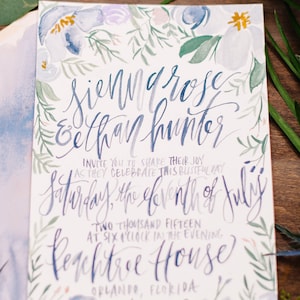 sienna rose
& ethan hunter
INVITE YOU TO SHARE THEIR JOY
AS THEY CELEBRATE THIS BLISSFUL DAY
Saturday, the eleventh of July
TWO THOUSAND FIFTEEN
AT SIX O'CLOCK IN THE EVENING
Peachtree House
ORLANDO, FLORIDA